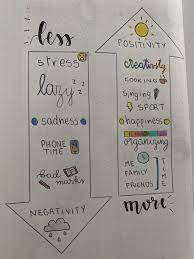 less
stress
lazy
z z z
sadness
PHONE
TIME
bad
marks
NEGATIVITY
POSITIVITY
creativity
COOKING
singing
SPORT
happiness
organizing
ME
FAMILY
FRIENDS
TIME
more